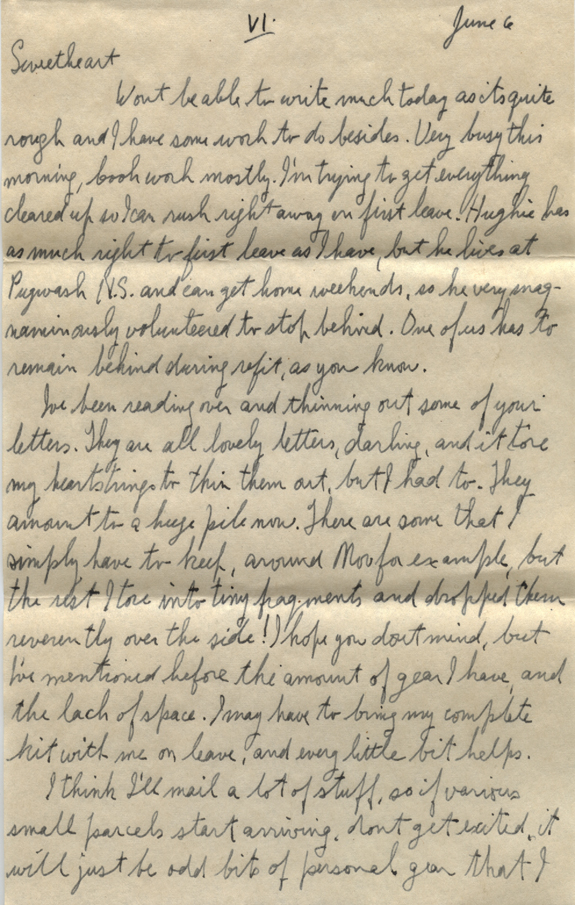 VI.
June 6
Sweetheart
Wont be able to write much today as its quite
rough and I have some work to do besides. Very busy this
morning, book work mostly. I'm trying to get everything
cleared up so I can rush right away on first leave. Hughie has
as much right to first leave as I have, but he lives at
Pugwash N.S. and can get home weekends, so he very mag-
naminously volunteered to stop behind. One of us has to
remain behind during refit, as you know.
I've been reading over and thinning out some of your
letters. They are all lovely letters, darling, and it tore
my heartstrings to thin them out, but I had to. They
amount to a huge pile now. There are some that I
simply have to keep, around Nov for example, but
the rest I tore into tiny fragments and dropped them
reverently over the side! I hope you dont mind, but
I've mentioned before the amount of gear I have, and
the lack of space. I may have to bring my complete
kit with me on leave, and every little bit helps.
I think I'll mail a lot of stuff, so if various
small parcels start arriving, dont get excited, it
will just be odd bits of personal gear that I